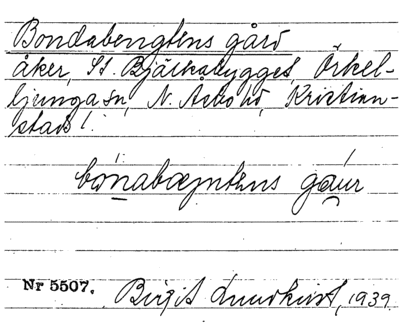 Bondabengtens gård
åker, St. Bjärkabygget, Örkel-
ljunga sn, N. Åsbo hd, Kristian-
stads l.
gáu̲r
Nr 5507. Birgit Lundkvist, 1939